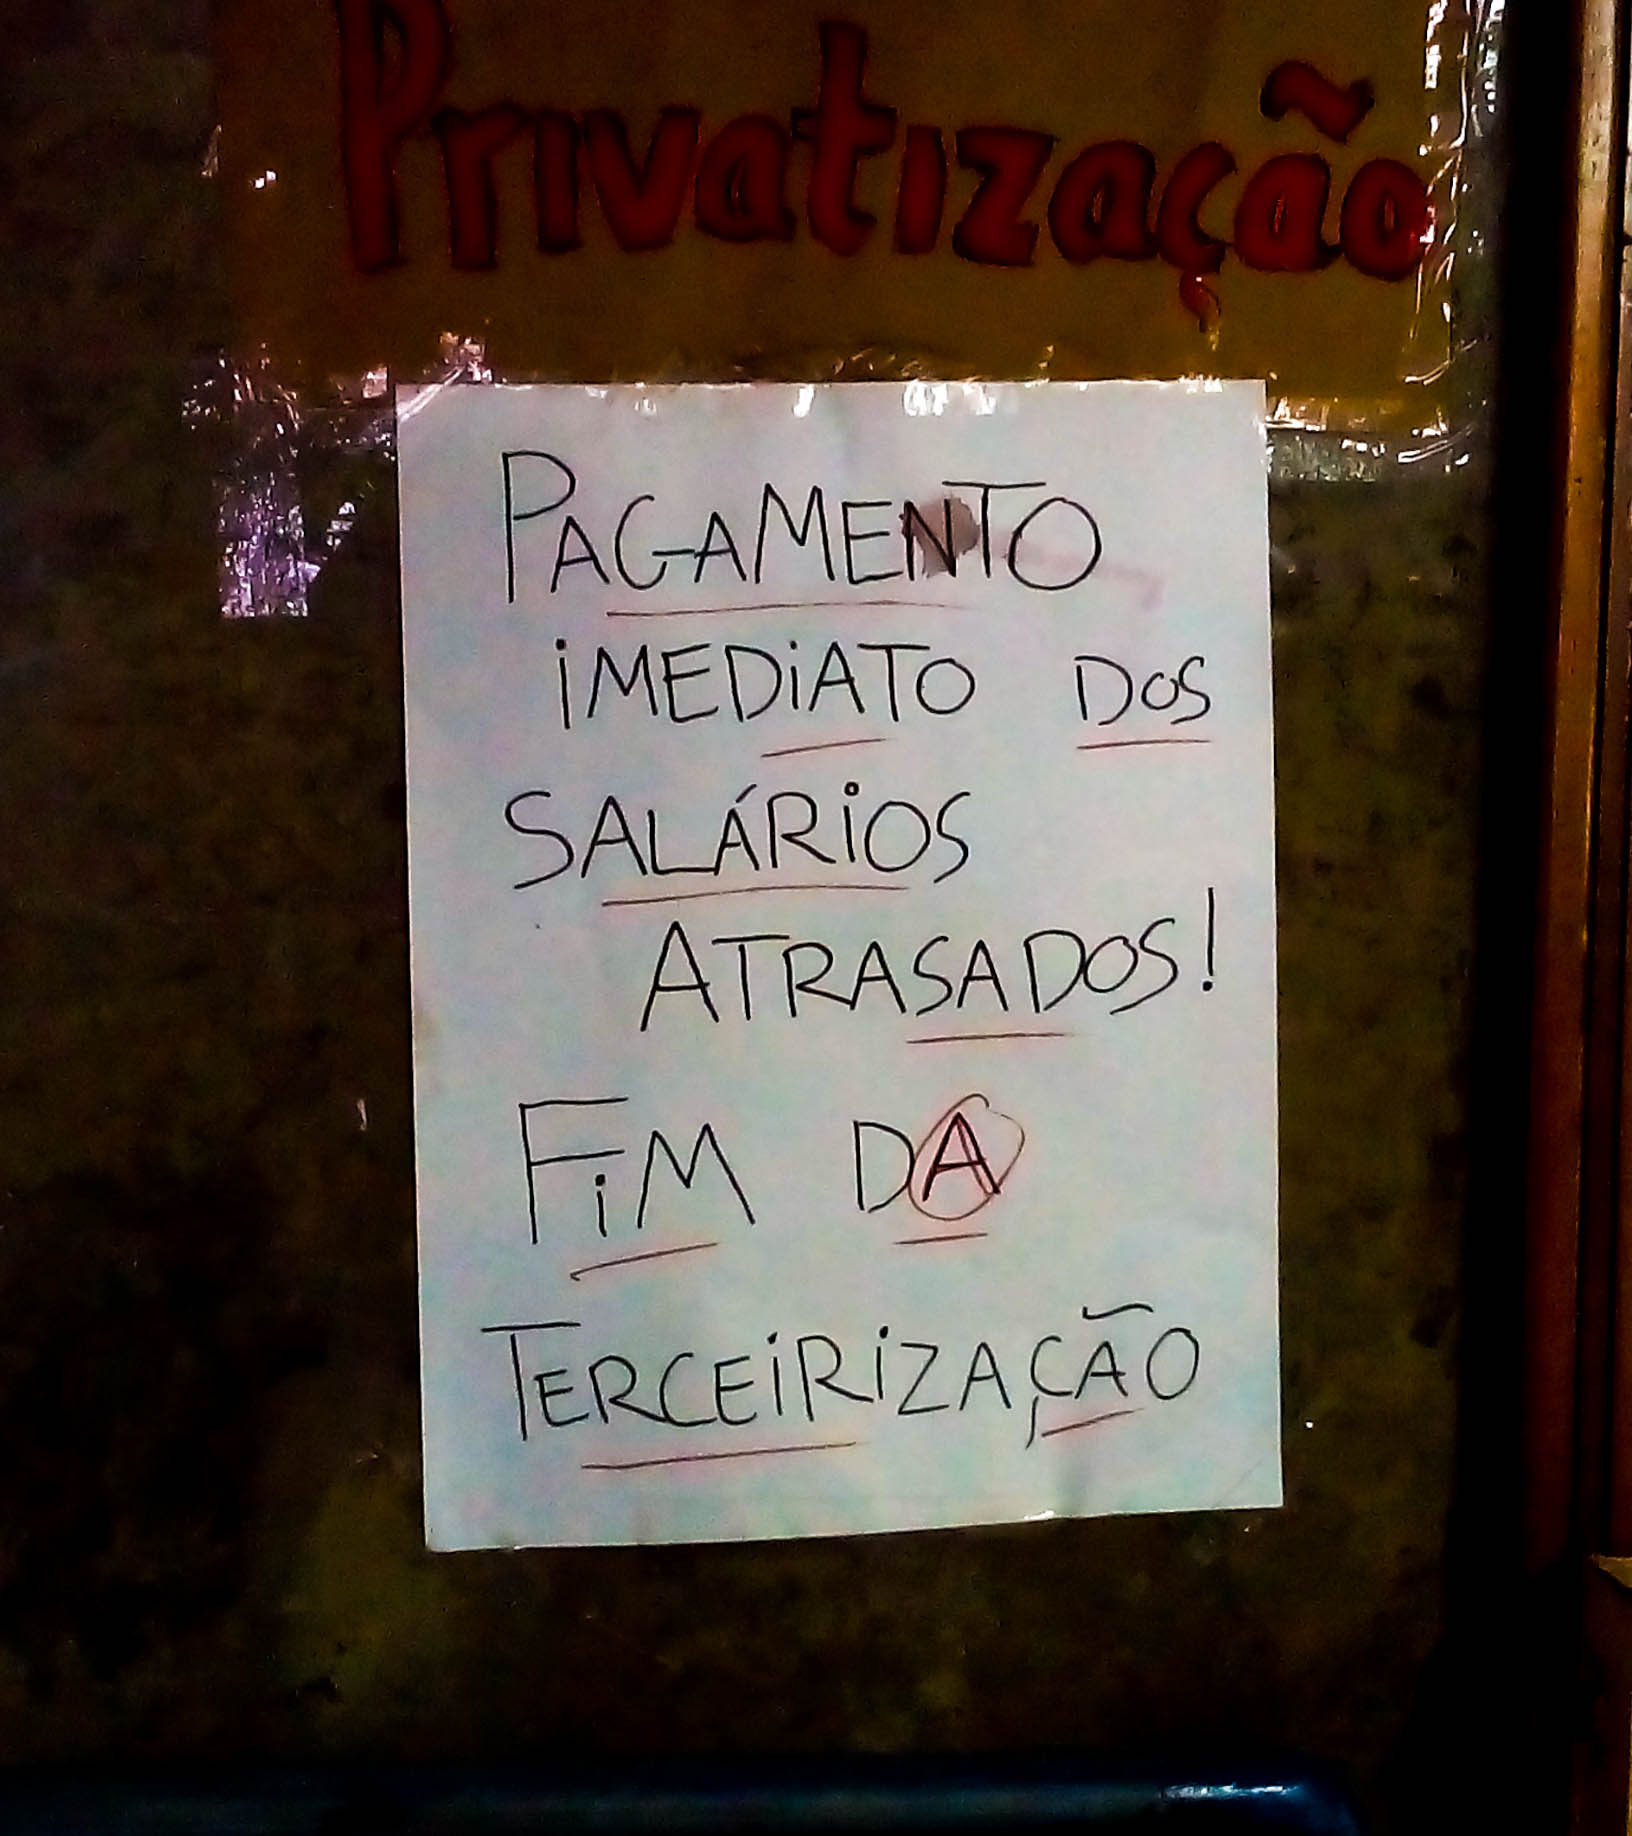 Privatização
PAGAMENTO
iMEDiATO DOS
SALÁRiOS
ATRASADOS!
FiM DA
TERCEiRiZAÇÃO